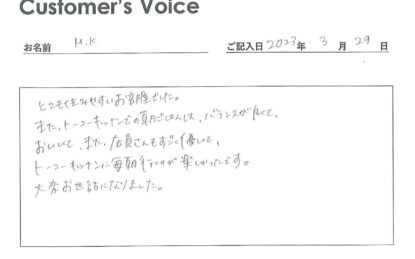 Customer's Voice
お名前 M.K ご記入日 2023年 3月 29日
とても住みやすいお部屋でした。
また、トーコーキッチンでの朝ごはんは、バランスが良くて、
おいしくて、また、店員さんもすごく優しくて、
トーコーキッチンに毎朝行くのが楽しかったです。
大変お世話になりました。